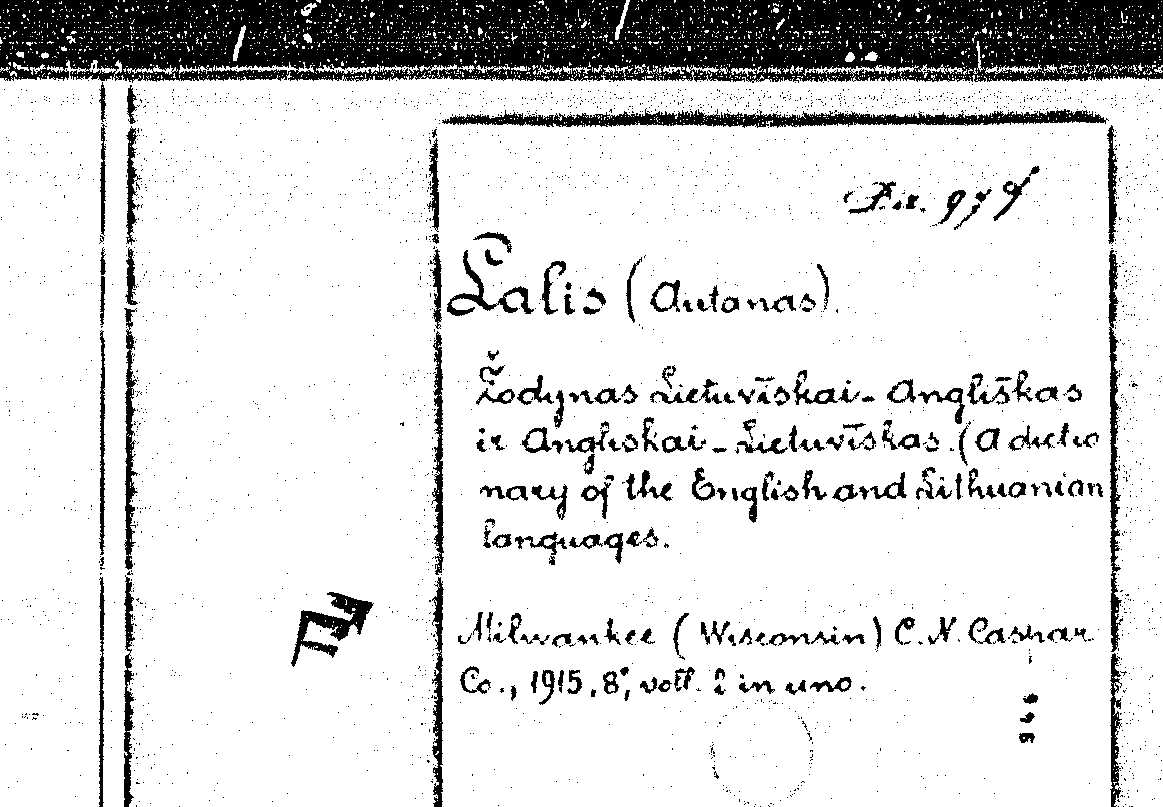 Diz. 979
Lalis (Antanas).
Žodynas Lietuvīskai-Angliškas
ir Angliskai-Lietuvīskas. (A dictio
nary of the English and Lithuanian
languages.
Milwankee (Wisconsin) C. N. Caspar
Co., 1915, 8°, voll. 2 in uno.